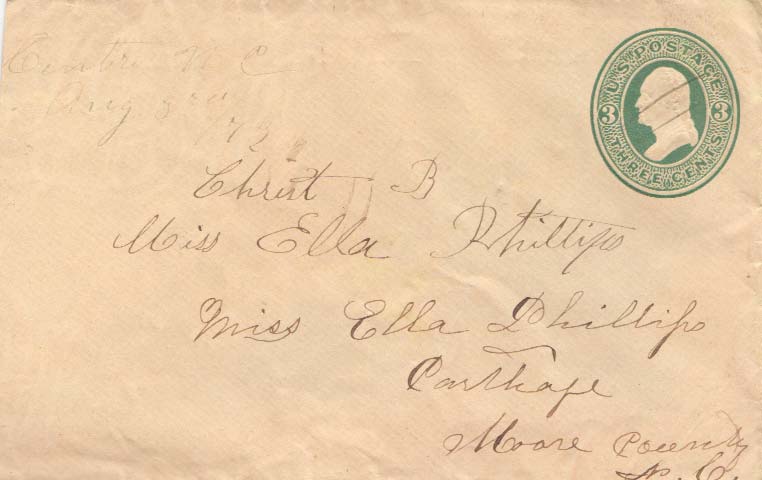 Centre N C
Aug 3rd
U.S. POSTAGE
3 3
THREE CENTS
Christ B
Miss Ella Phillips
Miss Ella Phillips
Carthage
Moore County
N. C.